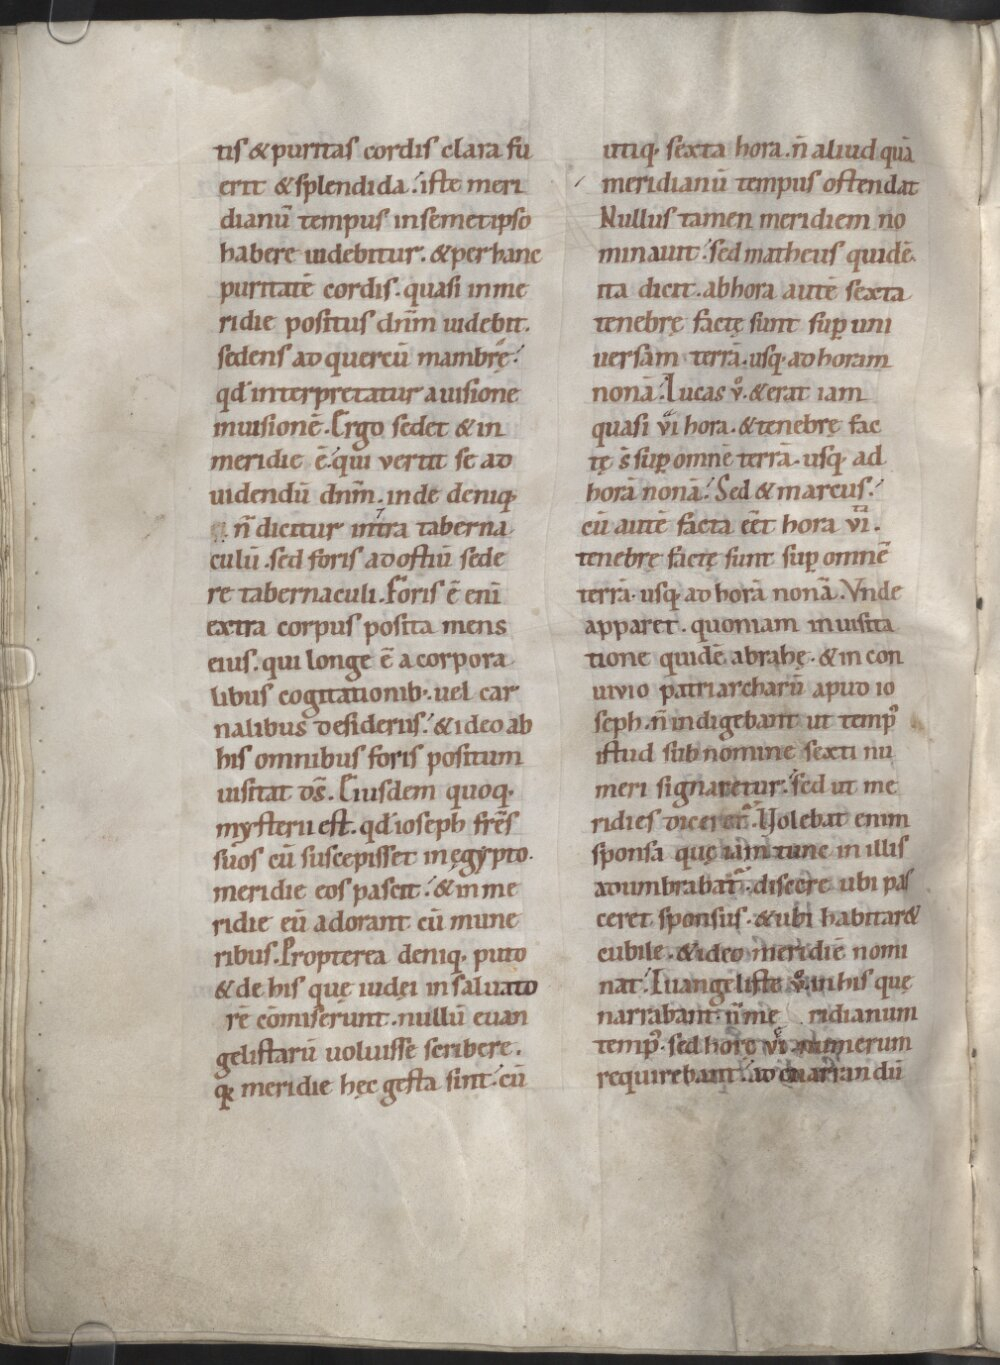 tis & puritas cordis clara fu
erit & splendida. iste meri
dianū tempus in semetipso
habere uidebitur. & per hanc
puritatē cordis. quasi in me
ridie positus dn̄m uidebit.
sedens ad quercū mambrę.
qd' interpretatur a uisione
in uisionē. Ergo sedet & in
meridie ē. qui vertit se ad
uidendū dn̄m. inde deniq;
n̄ dicitur intra taberna
culū. sed foris ad ostiū sede
re tabernaculi. Foris ē enī
extra corpus posita mens
eius. qui longe ē a corpora
libus cogitationib;. uel car
nalibus desideriis. & ideo ab
his omnibus foris positum
uisitat ds̄. Eiusdem quoq;
mysterii est. qd' ioseph fr̄es
suos cū suscepisset in ęgypto.
meridie eos pascit. & in me
ridie eū adorant cū mune
ribus. Propterea deniq; puto
& de his quę iudęi in saluato
rē cōmiserunt. nullū euan
gelistarū uoluisse scribere.
qd meridie hęc gesta sint. cū
utiq; sexta hora. n̄ aliud quā
meridianū tempus ostendat
Nullus tamen meridiem no
minauit. sed matheus quidē.
ita dicit. ab hora autē sexta
tenebrę factę sunt sup uni
uersam terrā. usq; ad horam
nonā. Lucas v̊. & erat iam
quasi vi hora. & tenebrę fac
tę s̄ sup omnē terrā. usq; ad
horā nonā. Sed & marcus.
cū autē facta eēt hora vi ta.
tenebrę factę sunt sup omnē
terrā. usq; ad horā nonā. Vnde
apparet. quoniam in uisita
tione quidē abrahę. & in con
uiuio patriarcharū apud io
seph. n̄ indigebant ut temp9
istud sub nomine sexti nu
meri signaretur. sed ut me
ridies diceret̄. Uolebat enim
sponsa quę iam tunc in illis
adumbrabat̄. discere ubi pas
ceret sponsus. & ubi habitar&
cubile. & ideo meridiē nomi
nat. Euangelistę v̊. in his quę
narrabant. n̄ me ridianum
temp9. sed horę vi numerum
requirebant. ad enarrandū